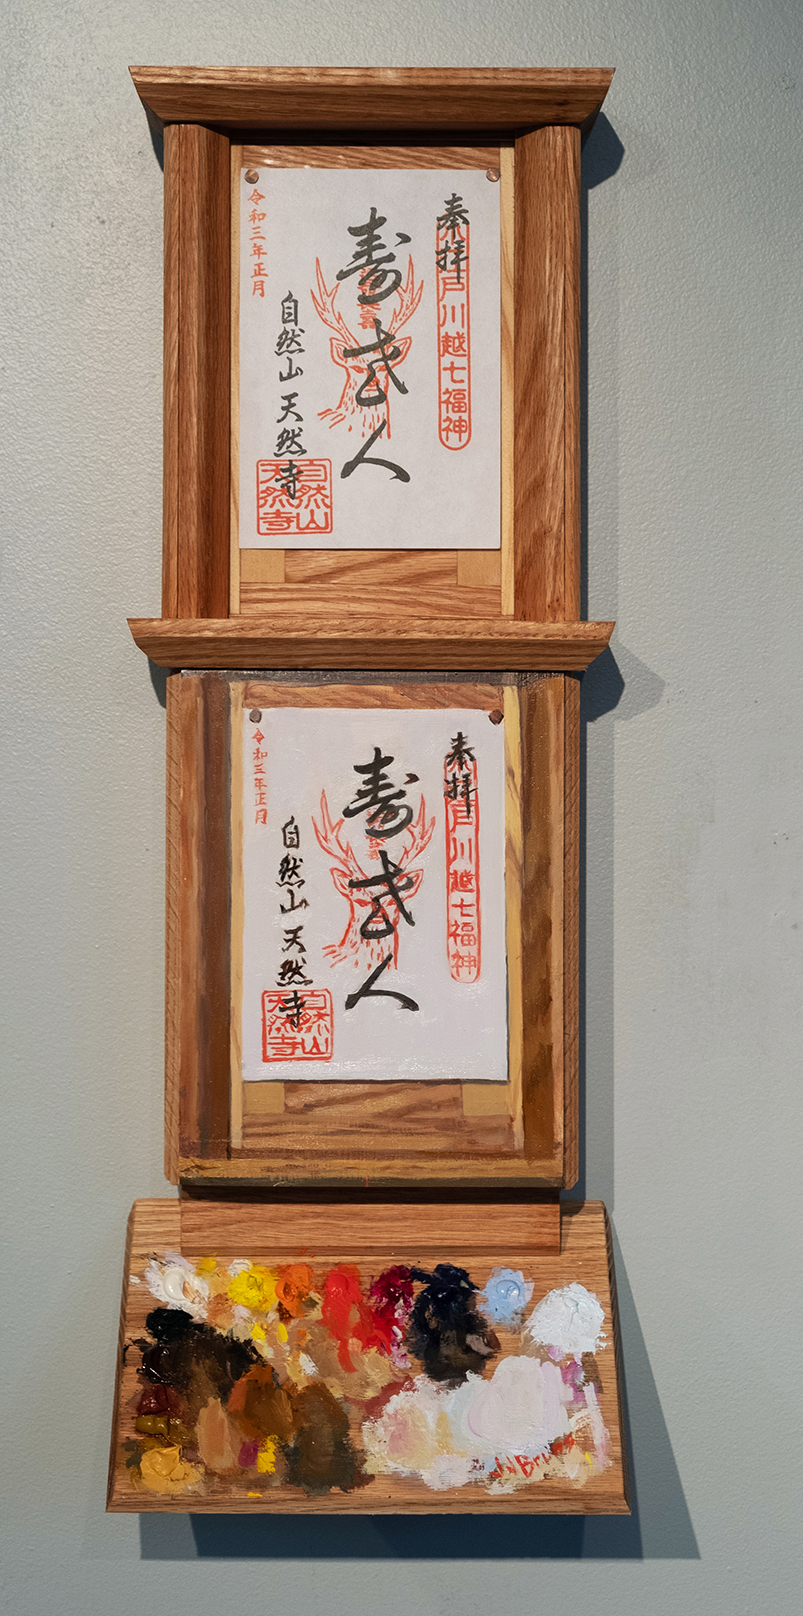 奉拝
戸川越七福神
寿老人
自然山 天然寺
自然山
天然寺
令和三年正月
奉拝
戸川越七福神
寿老人
自然山 天然寺
自然山
天然寺
令和三年正月